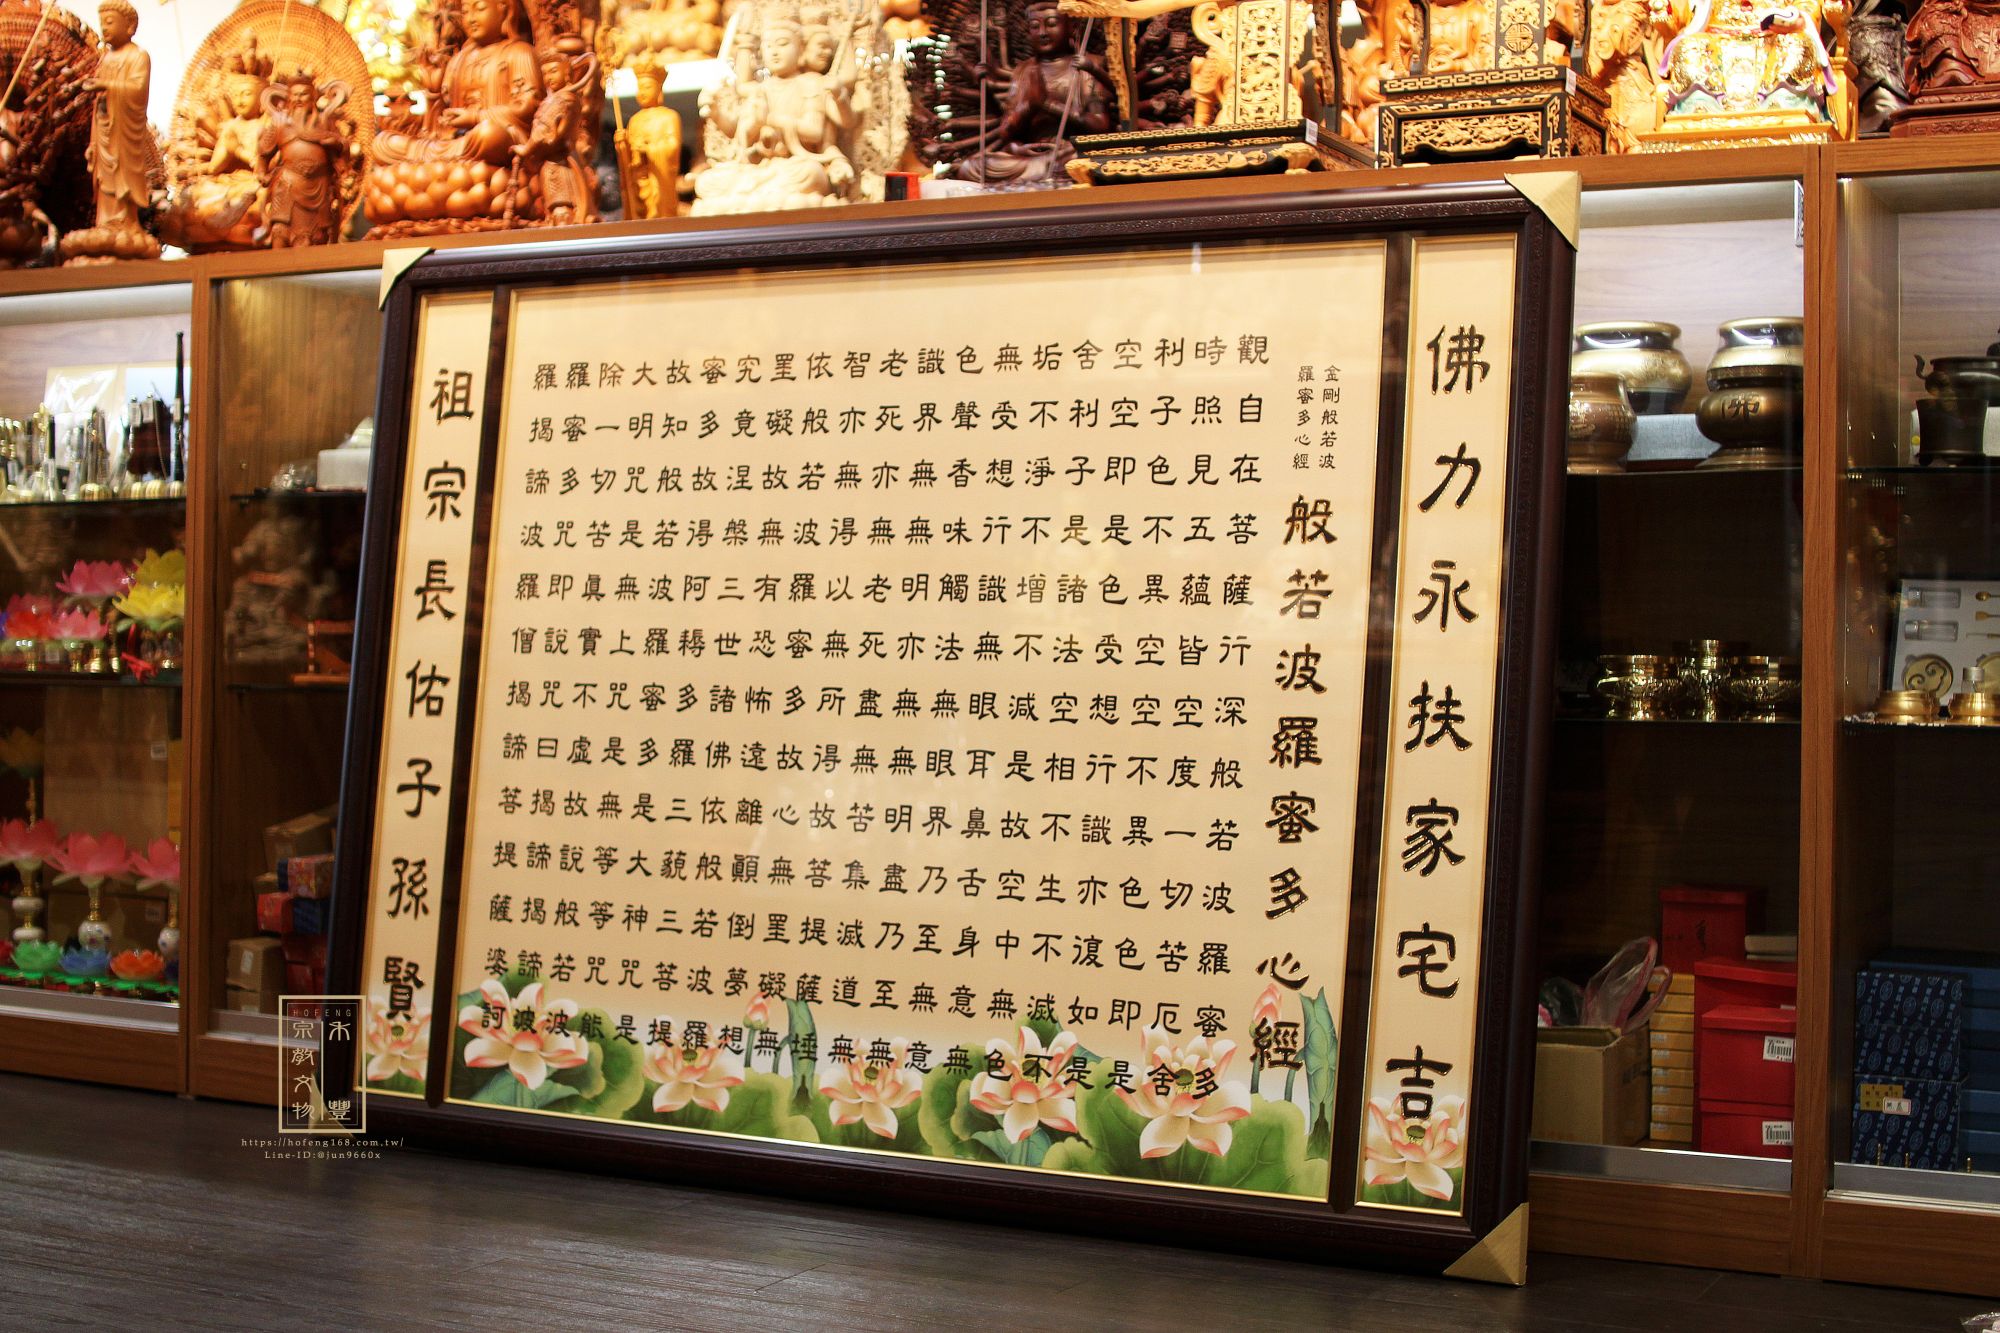 佛力永扶家宅吉
金剛般若波
羅蜜多心經
般若波羅蜜多心經
觀自在菩薩行深般若波羅蜜多
時照見五蘊皆空度一切苦厄舍
利子色不異空空不異色色即是
空空即是色受想行識亦復如是
舍利子是諸法空相不生不滅不
垢不淨不增不減是故空中無色
無受想行識無眼耳鼻舌身意無
色聲香味觸法無眼界乃至無意
識界無無明亦無無明盡乃至無
老死亦無老死盡無苦集滅道無
智亦無得以無所得故菩提薩埵
依般若波羅蜜多故心無罣礙無
罣礙故無有恐怖遠離顚倒夢想
究竟涅槃三世諸佛依般若波羅
蜜多故得阿耨多羅三藐三菩提
故知般若波羅蜜多是大神咒是
大明咒是無上咒是無等等咒能
除一切苦眞實不虛故說般若波
羅蜜多咒即說咒曰揭諦揭諦波
羅揭諦波羅僧揭諦菩提薩婆訶
祖宗長佑子孫賢
HOFENG
禾豐
宗教文物
https://hofeng168.com.tw/
Line-ID:@jun9660x